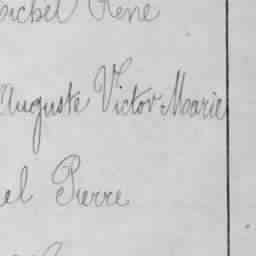 René
Auguste Victor Marie
el Pierre